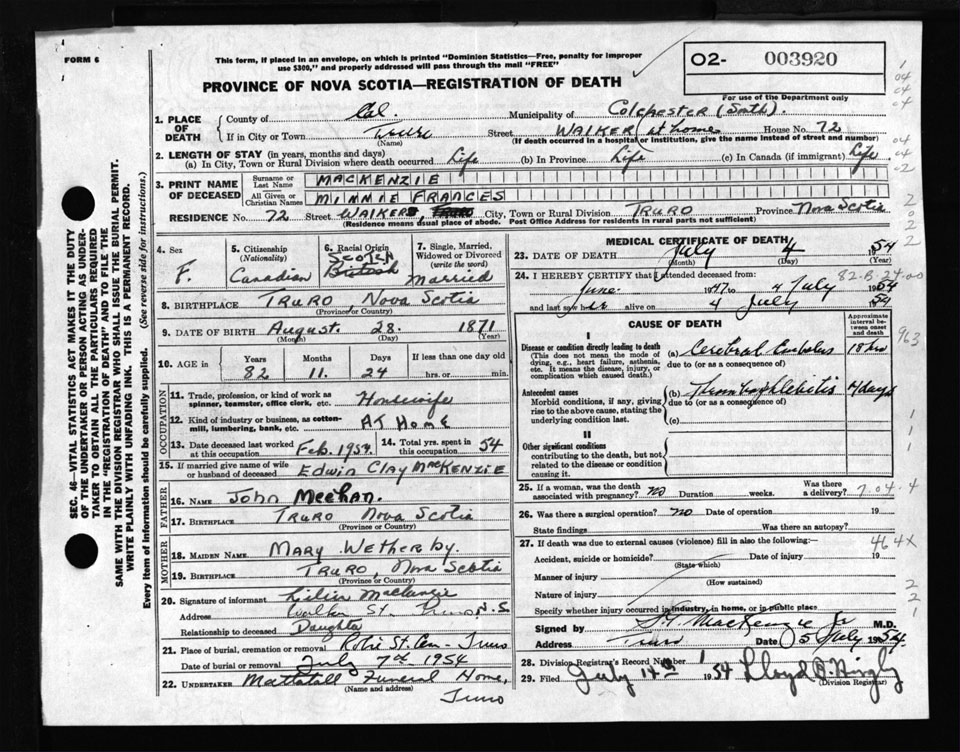 FORM 6
This form, if placed in an envelope, on which is printed "Dominion Statistics—Free, penalty for improper
use $300," and properly addressed will pass through the mail "FREE"
O2- 003920
PROVINCE OF NOVA SCOTIA—REGISTRATION OF DEATH
For use of the Department only
1. PLACE OF DEATH
County of Col. Municipality of Colchester (South).
If in City or Town Truro Street WALKER at home House No. 72
(Name) (If death occurred in a hospital or institution, give the name instead of street and number)
2. LENGTH OF STAY (in years, months and days)
(a) In City, Town or Rural Division where death occurred Life (b) In Province Life (c) In Canada (if immigrant) Life
3. PRINT NAME OF DECEASED
Surname or Last Name MACKENZIE
All Given or Christian Names MINNIE FRANCES
RESIDENCE No. 72 Street WALKER, TRURO City, Town or Rural Division TRURO Province Nova Scotia
(Residence means usual place of abode. Post Office Address for residents in rural parts not sufficient)
4. Sex
F.
5. Citizenship
(Nationality)
Canadian
6. Racial Origin
SCOTCH
British
7. Single, Married, Widowed or Divorced
(write the word)
Married
8. BIRTHPLACE TRURO, Nova Scotia
(Province or Country)
9. DATE OF BIRTH August 28. 1871
(Month) (Day) (Year)
10. AGE in
Years Months Days If less than one day old
82 11. 24 hrs. or min.
OCCUPATION
11. Trade, profession, or kind of work as
spinner, teamster, office clerk, etc. Housewife
12. Kind of industry or business, as cotton-
mill, lumbering, bank, etc. AT HOME
13. Date deceased last worked
at this occupation Feb. 1954.
14. Total yrs. spent in
this occupation 54
15. If married give name of wife
or husband of deceased Edwin Clay MacKENZIE
FATHER
16. NAME John Meehan.
17. BIRTHPLACE TRURO Nova Scotia
(Province or Country)
MOTHER
18. MAIDEN NAME MARY Wetherby.
19. BIRTHPLACE TRURO, Nova Scotia
(Province or Country)
20. Signature of informant MacKenzie
Address Walker St. Truro N.S.
Relationship to deceased Daughter
21. Place of burial, cremation or removal Robie St. Cem - Truro
Date of burial or removal July 7th 1954
22. UNDERTAKER Mattatall Funeral Home,
(Name and address) Truro
MEDICAL CERTIFICATE OF DEATH
23. DATE OF DEATH July 4 1954
(Month) (Day)
24. I HEREBY CERTIFY that I attended deceased from:
82-B-24-00
June 1947 to 4 July 1954
and last saw her alive on 4 July 1954
CAUSE OF DEATH
Approximate interval between onset and death
I
Disease or condition directly leading to death
(This does not mean the mode of
dying, e.g., heart failure, asthenia,
etc. It means the disease, injury, or
complication which caused death.)
(a) Cerebral Embolus 18 hrs
due to (or as a consequence of)
Antecedent causes
Morbid conditions, if any, giving
rise to the above cause, stating the
underlying condition last.
(b) Thrombophlebitis 4 days
due to (or as a consequence of)
(c)
II
Other significant conditions
contributing to the death, but not
related to the disease or condition
causing it.
25. If a woman, was the death
associated with pregnancy? no Duration weeks. Was there a delivery?
26. Was there a surgical operation? no Date of operation 19
State findings Was there an autopsy?
27. If death was due to external causes (violence) fill in also the following:—
Accident, suicide or homicide? Date of injury 19
(State which)
Manner of injury
(How sustained)
Nature of injury
Specify whether injury occurred in industry, in home, or in public place
Signed by MacKenzie Jr M.D.
Address Truro Date 5 July 1954
28. Division Registrar's Record Number
29. Filed July 14th 1954 Lloyd
(Division Registrar)
963
464X
SEC. 46—VITAL STATISTICS ACT MAKES IT THE DUTY
OF THE UNDERTAKER OR PERSON ACTING AS UNDER-
TAKER TO OBTAIN ALL THE PARTICULARS REQUIRED
IN THE "REGISTRATION OF DEATH" AND TO FILE THE
SAME WITH THE DIVISION REGISTRAR WHO SHALL ISSUE THE BURIAL PERMIT.
WRITE PLAINLY WITH UNFADING INK. THIS IS A PERMANENT RECORD.
Every item of information should be carefully supplied. (See reverse side for instructions.)